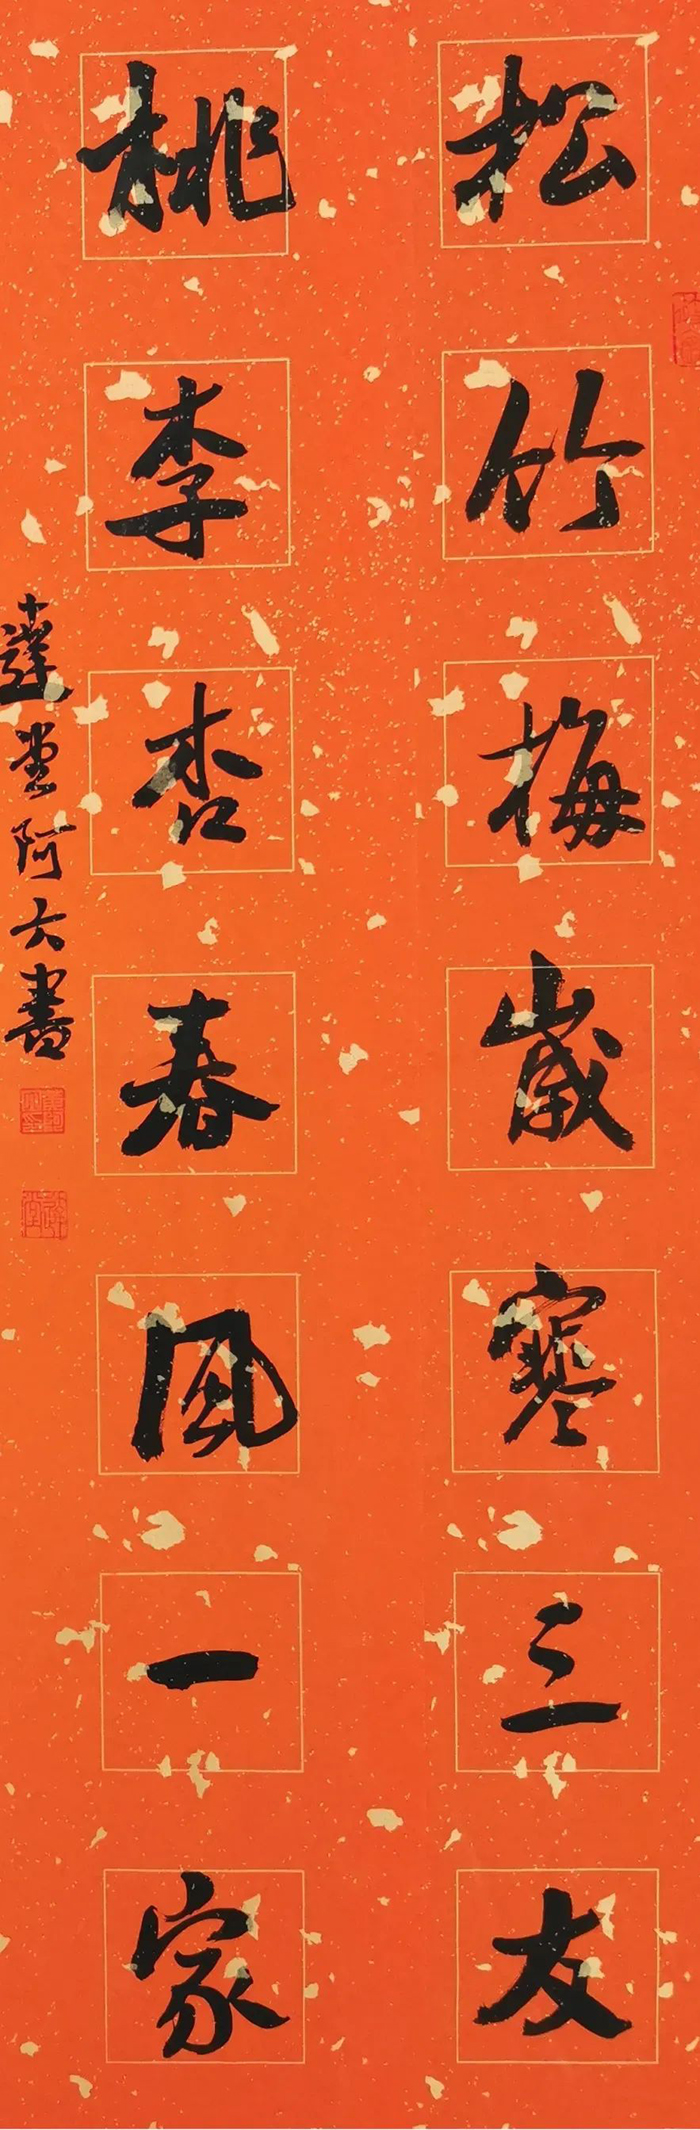 松竹梅歲寒三友
桃李杏春風一家
達堂阿大書